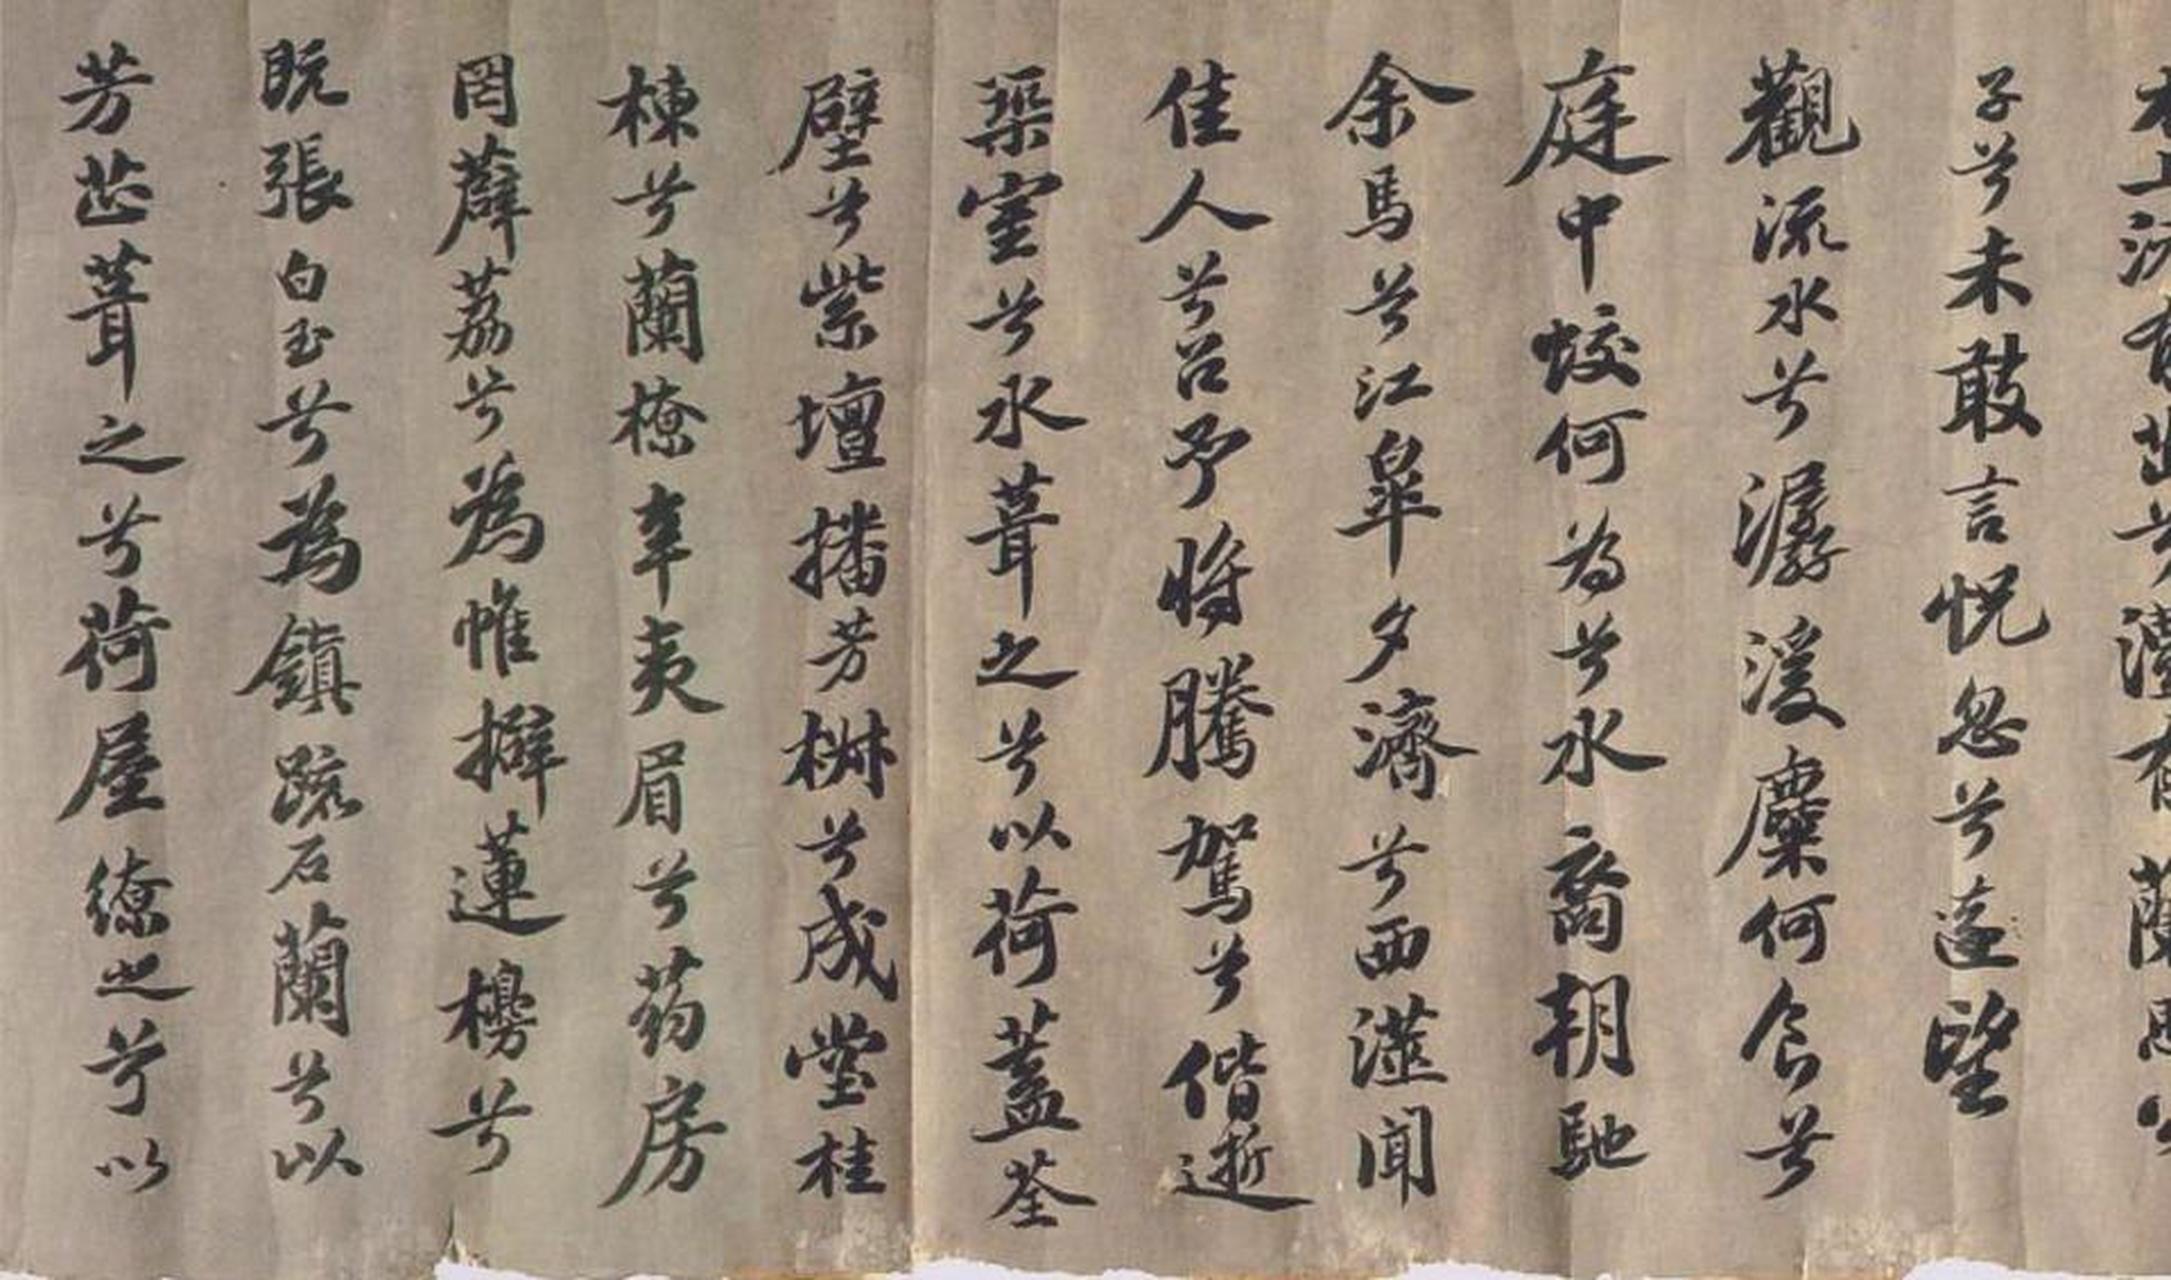 木上沅有茝兮澧有蘭思公
子兮未敢言怳忽兮遠望
觀流水兮潺湲麋何食兮
庭中蛟何為兮水裔朝馳
余馬兮江皋夕濟兮西澨聞
佳人兮召予將騰駕兮偕逝
築室兮水葺之兮以荷蓋荃
壁兮紫壇播芳椒兮成堂桂
棟兮蘭橑辛夷眉兮葯房
罔薜荔兮為帷擗蓮櫋兮
既張白玉兮為鎮疏石蘭兮以
芳芷葺之兮荷屋繚之兮以